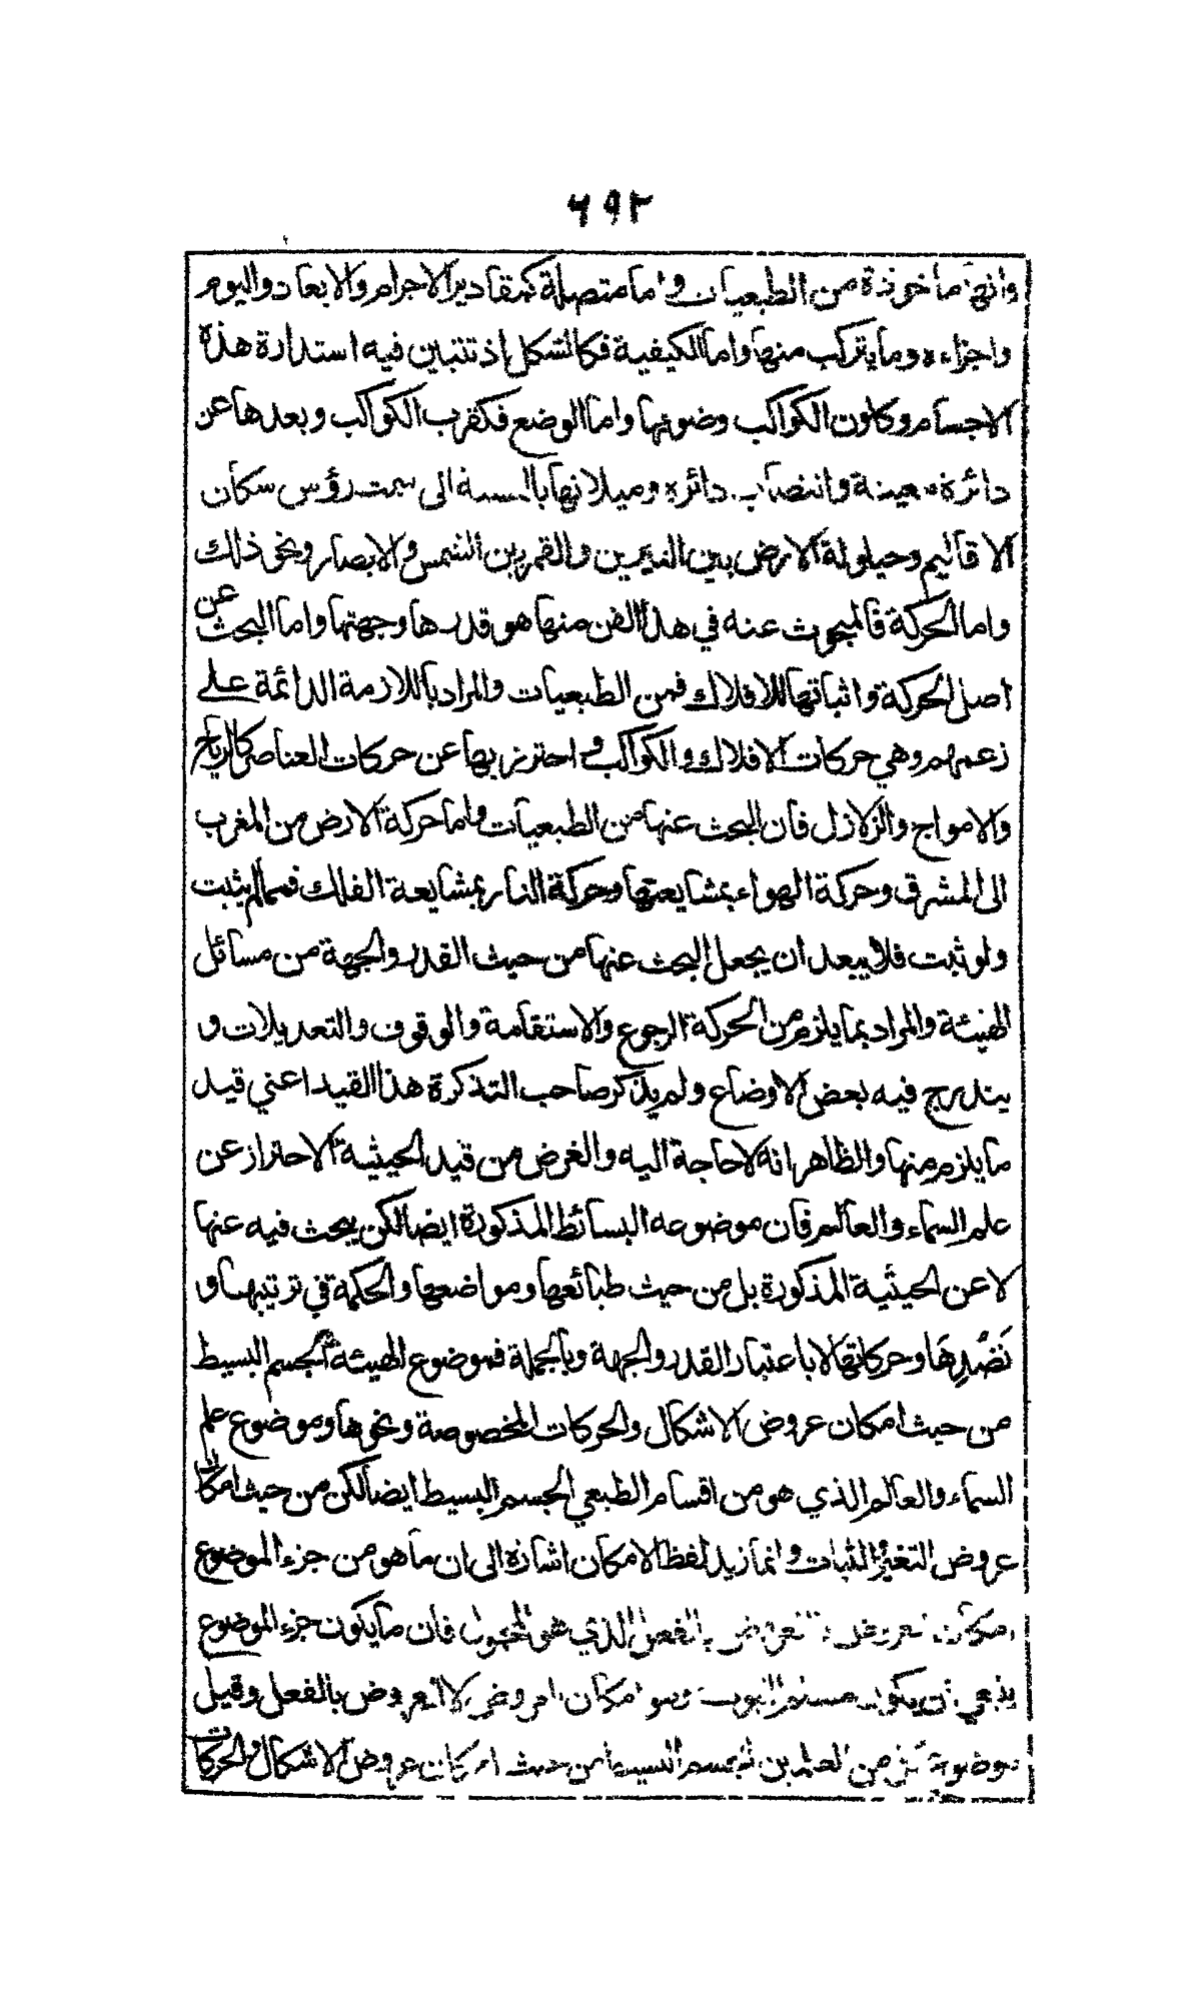 ٦٩٢
وانها ماخوذة من الطبعيات واما متصلة كمقادير الاجرام والابعاد واليوم
واجزاءه وما يتركب منها واما الكيفية فكالشكل اذ تتبين فيه استدارة هذه
الاجسام وكلون الكواكب وضوئها واما الوضع فكقرب الكواكب وبعدها عن
دائرة معينة وانتصاب دائرة وميلانها بالنسبة الى سمت رؤس سكان
الاقاليم وحيلولة الارض بين النيرين والقمر بين الشمس والابصار ونحو ذلك
واما الحركة فالمبحوث عنه في هذا الفن منها هو قدرها وجهتها واما البحث عن
اصل الحركة واثباتها للافلاك فمن الطبعيات والمراد باللازمة الدائمة على
زعمهم وهي حركات الافلاك والكواكب واحترز بها عن حركات العناصر كالرياح
والامواج والزلازل فان البحث عنها من الطبعيات واما حركة الارض من المغرب
الى المشرق وحركة الهواء بمشايعتها وحركة النار بمشايعة الفلك فمما لم يثبت
ولو ثبت فلا يبعد ان يجعل البحث عنها من حيث القدر والجهة من مسائل
الهيئة والمراد بما يلزم من الحركة الرجوع والاستقامة والوقوف والتعديلات و
يندرج فيه بعض الاوضاع ولم يذكر صاحب التذكرة هذا القيد اعني قيد
ما يلزم منها والظاهر انه لاحاجة اليه والغرض من قيد الحيثية الاحتراز عن
علم السماء والعالم فان موضوعه البسائط المذكورة ايضا لكن يبحث فيه عنها
لا عن الحيثية المذكورة بل من حيث طبائعها ومواضعها والحكمة في ترتيبها و
نضدها وحركاتها لا باعتبار القدر والجهة وبالجملة فموضوع الهيئة الجسم البسيط
من حيث امكان عروض الاشكال والحركات المخصوصة ونحوها وموضوع علم
السماء والعالم الذي هو من اقسام الطبعي الجسم البسيط ايضا لكن من حيث امكان
عروض التغير والثبات وانما زيد لفظ الامكان اشارة الى ان ما هو من جزء الموضوع
امكان العروض لا العروض بالفعل الذي هو المحمول فان ما يكون جزء الموضوع
ينبغي ان يكون مسلم الثبوت وهو امكان العروض لا العروض بالفعل وقيل
موضوع كل من العلمين الجسم البسيط من حيث امكان عروض الاشكال والحركات